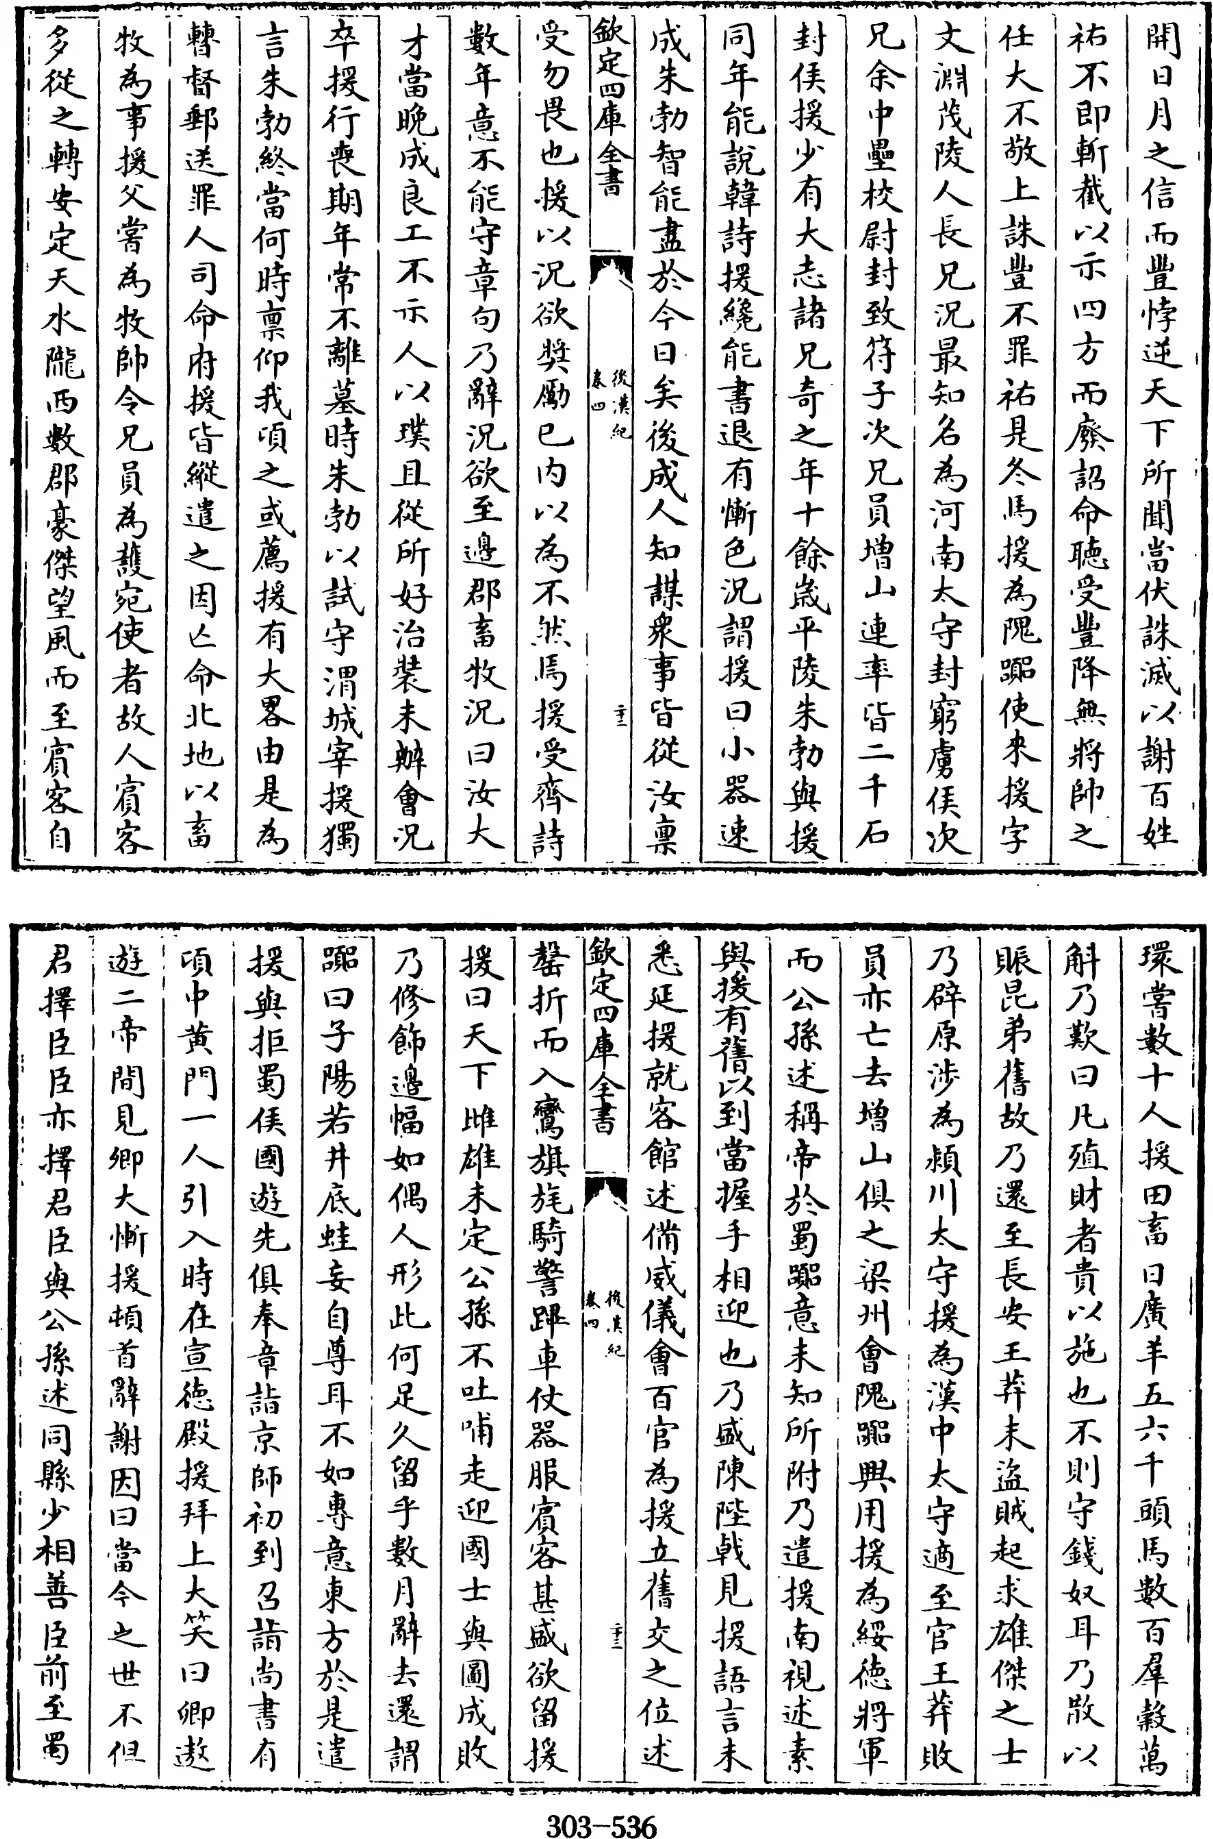 開日月之信而豐悖逆天下所聞當伏誅滅以謝百姓
祐不即斬截以示四方而廢詔命聽受豐降無將帥之
任大不敬上誅豐不罪祐是冬馬援為隗囂使來援字
文淵茂陵人長兄況最知名為河南太守封窮虜侯次
兄余中壘校尉封致符子次兄員增山連率皆二千石
封侯援少有大志諸兄奇之年十餘歲平陵朱勃與援
同年能說韓詩援纔能書退有慚色況謂援曰小器速
成朱勃智能盡於今日矣後成人知謀衆事皆從汝稟
欽定四庫全書
後漢紀
卷四
二十二
受勿畏也援以況欲奬勵已内以為不然焉援受齊詩
數年意不能守章句乃辭況欲至邊郡畜牧況曰汝大
才當晩成良工不示人以璞且從所好治裝未辦會況
卒援行喪期年常不離墓時朱勃以試守渭城宰援獨
言朱勃終當何時稟仰我頃之或薦援有大畧由是為
督郵送罪人司命府援皆縱遣之因亡命北地以畜
牧為事援父嘗為牧帥令兄員為護宛使者故人賓客
多從之轉安定天水隴西數郡豪傑望風而至賓客自
環嘗數十人援田畜日廣羊五六千頭馬數百羣穀萬
斛乃歎曰凡殖財者貴以施也不則守錢奴耳乃散以
賑昆弟舊故乃還至長安王莽末盜賊起求雄傑之士
乃辟原涉為潁川太守援為漢中太守適至官王莽敗
員亦亡去增山俱之梁州會隗囂興用援為綏德將軍
而公孫述稱帝於蜀囂意未知所附乃遣援南視述素
與援有舊以到當握手相迎也乃盛陳陛戟見援語言未
悉延援就客館述備威儀會百官為援立舊交之位述
欽定四庫全書
後漢紀
卷四
二十三
鸞旗旄騎警蹕車仗器服賓客甚盛欲留援
援曰天下雌雄未定公孫不吐哺走迎國士與圖成敗
乃修飾邊幅如偶人形此何足久留乎數月辭去還謂
囂曰子陽若井底蛙妄自尊耳不如專意東方於是遣
援與拒蜀侯國遊先俱奉章詣京師初到召詣尚書有
頃中黃門一人引入時在宣德殿援拜上大笑曰卿遨
遊二帝間見卿大慚援頓首辭謝因曰當今之世不但
君擇臣臣亦擇君臣與公孫述同縣少相善臣前至蜀
303-536